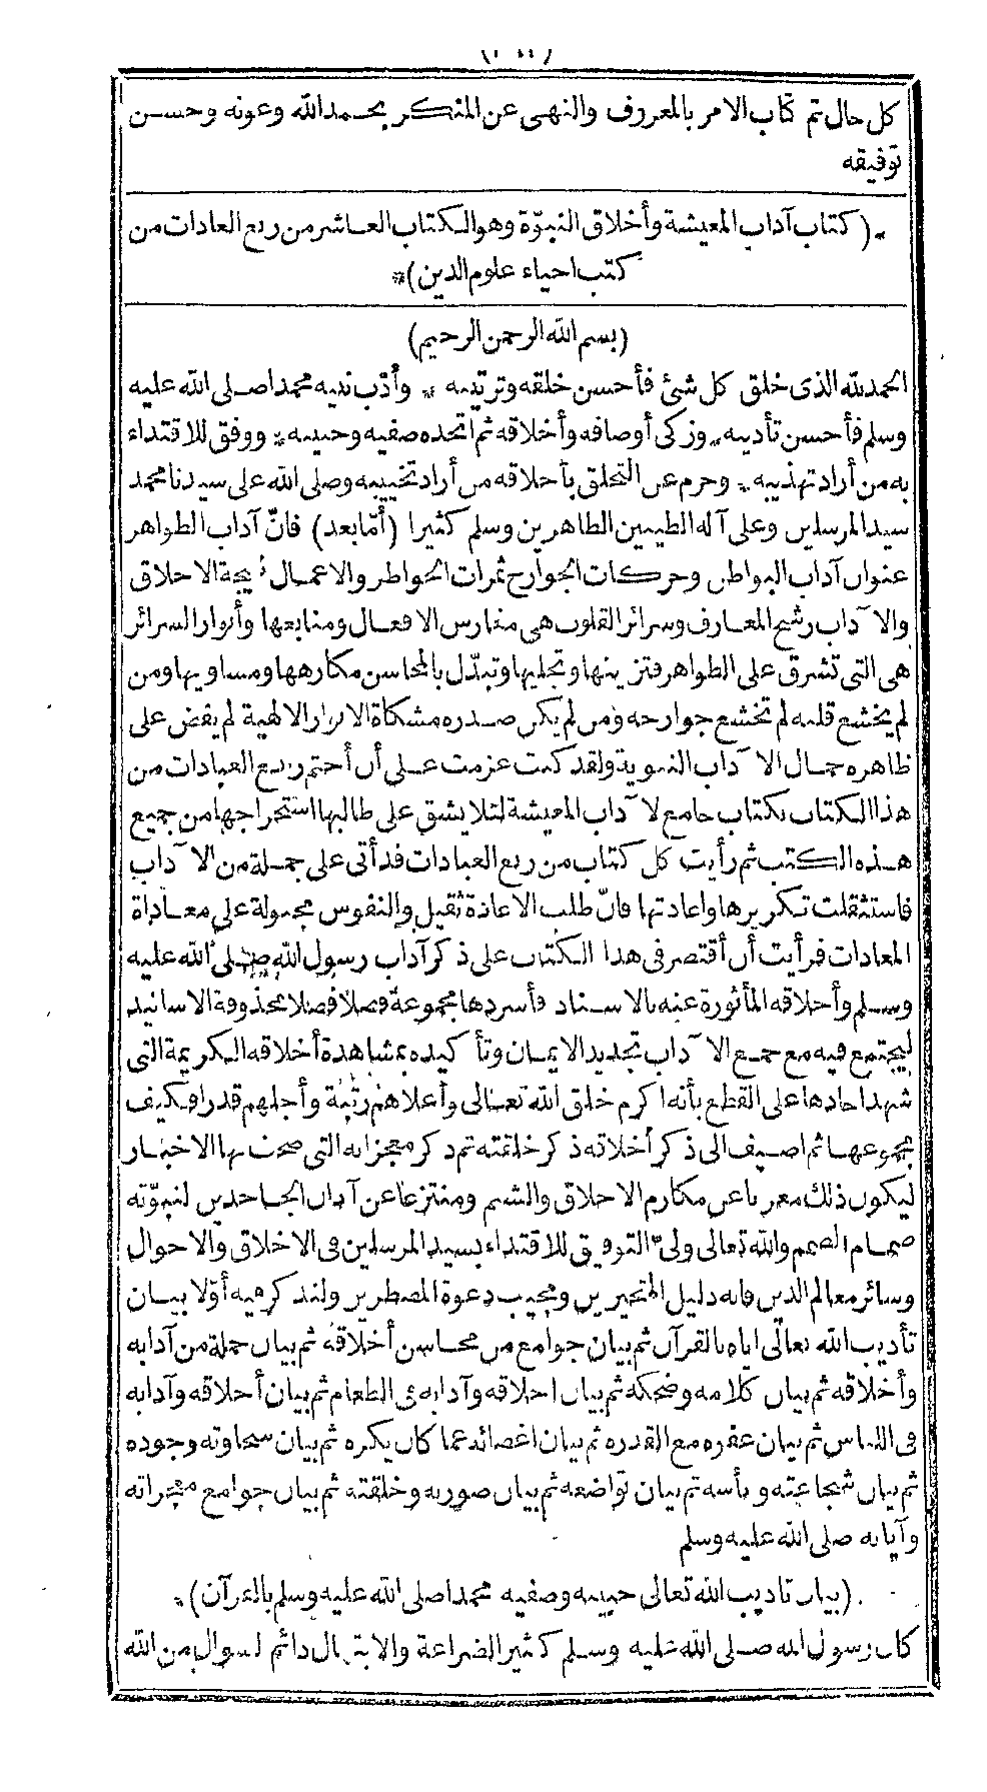 كل حال تم كتاب الامر بالمعروف والنهى عن المنكر بحمد الله وعونه وحسن
توفيقه
*(كتاب آداب المعيشة وأخلاق النبوّة وهو الكتاب العاشر من ربع العادات من
كتب احياء علوم الدين)*
(بسم الله الرحمن الرحيم)
الحمد لله الذى خلق كل شئ فأحسن خلقه وترتيبه * وأدّب نبيه محمدا صلى الله عليه
وسلم فأحسن تأديبه * وزكى أوصافه وأخلاقه ثم اتخذه صفيه وحبيبه * ووفق للاقتداء
به من أراد تهذيبه * وحرم عن التخلق بأخلاقه من أراد تخييبه وصلى الله على سيدنا محمد
سيد المرسلين وعلى آله الطيبين الطاهرين وسلم كثيرا (أمّا بعد) فانّ آداب الظواهر
عنوان آداب البواطن وحركات الجوارح ثمرات الخواطر والاعمال نتيجة الاخلاق
والآداب رشح المعارف وسرائر القلوب هى مغارس الافعال ومنابعها وأنوار السرائر
هى التى تشرق على الظواهر فتزينها وتجليها وتبدّل بالمحاسن مكارهها ومساويها ومن
لم يخشع قلبه لم تخشع جوارحه ومن لم يكن صدره مشكاة الانوار الالهية لم يفض على
ظاهره جمال الآداب النبوية ولقد كنت عزمت على أن أختم ربع العبادات من
هذا الكتاب بكتاب جامع لآداب المعيشة لئلا يشق على طالبها استخراجها من جميع
هذه الكتب ثم رأيت كل كتاب من ربع العبادات قد أتى على جملة من الآداب
فاستثقلت تكريرها واعادتها فانّ طلب الاعادة ثقيل والنفوس مجبولة على معاداة
المعادات فرأيت أن أقتصر فى هذا الكتاب على ذكر آداب رسول الله صلى الله عليه
وسلم وأخلاقه المأثورة عنه بالاسناد فأسردها مجموعة فصلا فصلا محذوفة الاسانيد
ليجتمع فيه مع جمع الآداب تجديد الايمان وتأكيده بمشاهدة أخلاقه الكريمة التى
شهد احادها على القطع بأنه اكرم خلق الله تعالى وأعلاهم رتبة وأجلهم قدرا فكيف
بمجموعها ثم اضيف الى ذكر أخلاقه ذكر خلقته ثم ذكر معجزاته التى صحت بها الاخبار
ليكون ذلك معربا عن مكارم الاخلاق والشيم ومنتزعا عن آذان الجاحدين لنبوّته
صمام الصمم والله تعالى ولىّ التوفيق للاقتداء بسيد المرسلين فى الاخلاق والاحوال
وسائر معالم الدين فانه دليل المتحيرين ومجيب دعوة المضطرين ولنذكر فيه أوّلا بيان
تأديب الله تعالى اياه بالقرآن ثم بيان جوامع من محاسن أخلاقه ثم بيان جملة من آدابه
وأخلاقه ثم بيان كلامه وضحكه ثم بيان اخلاقه وآدابه فى الطعام ثم بيان أخلاقه وآدابه
فى اللباس ثم بيان عفوه مع القدره ثم بيان اغضائه عما كان يكره ثم بيان سخاوته وجوده
ثم بيان شجاعته وبأسه ثم بيان تواضعه ثم بيان صورته وخلقته ثم بيان جوامع معجزاته
وآياته صلى الله عليه وسلم
(بيان تاديب الله تعالى حبيبه وصفيه محمدا صلى الله عليه وسلم بالقرآن)*
كان رسول الله صلى الله عليه وسلم كثير الضراعة والابتهال دائم السوال من الله